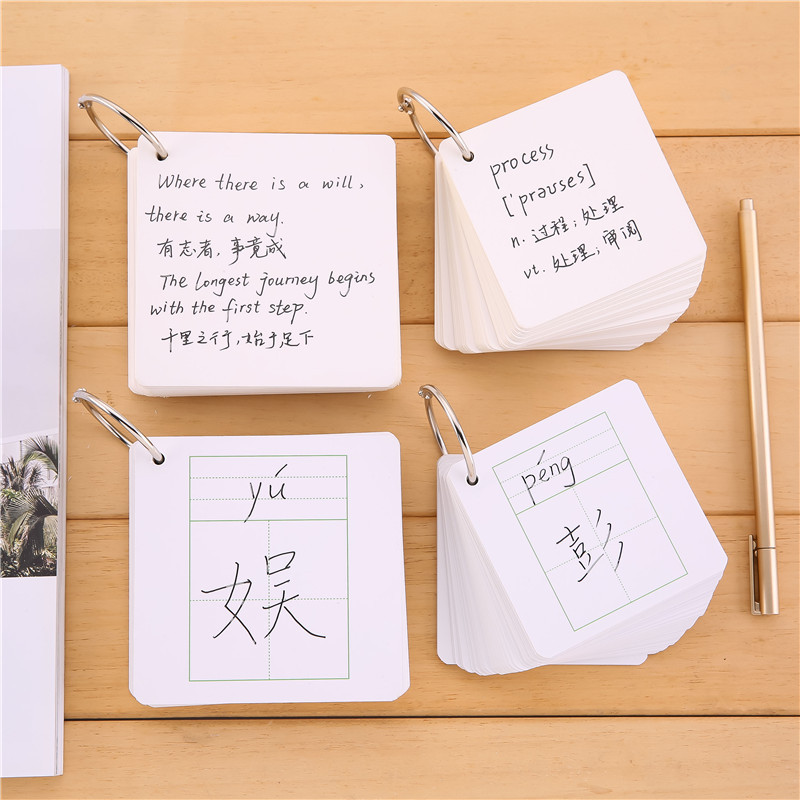 Where there is a will,
there is a way.
有志者，事竟成
The longest journey begins
with the first step.
千里之行，始于足下
process
['prəuses]
n. 过程；处理
vt. 处理；审阅
yú
娱
péng
彭